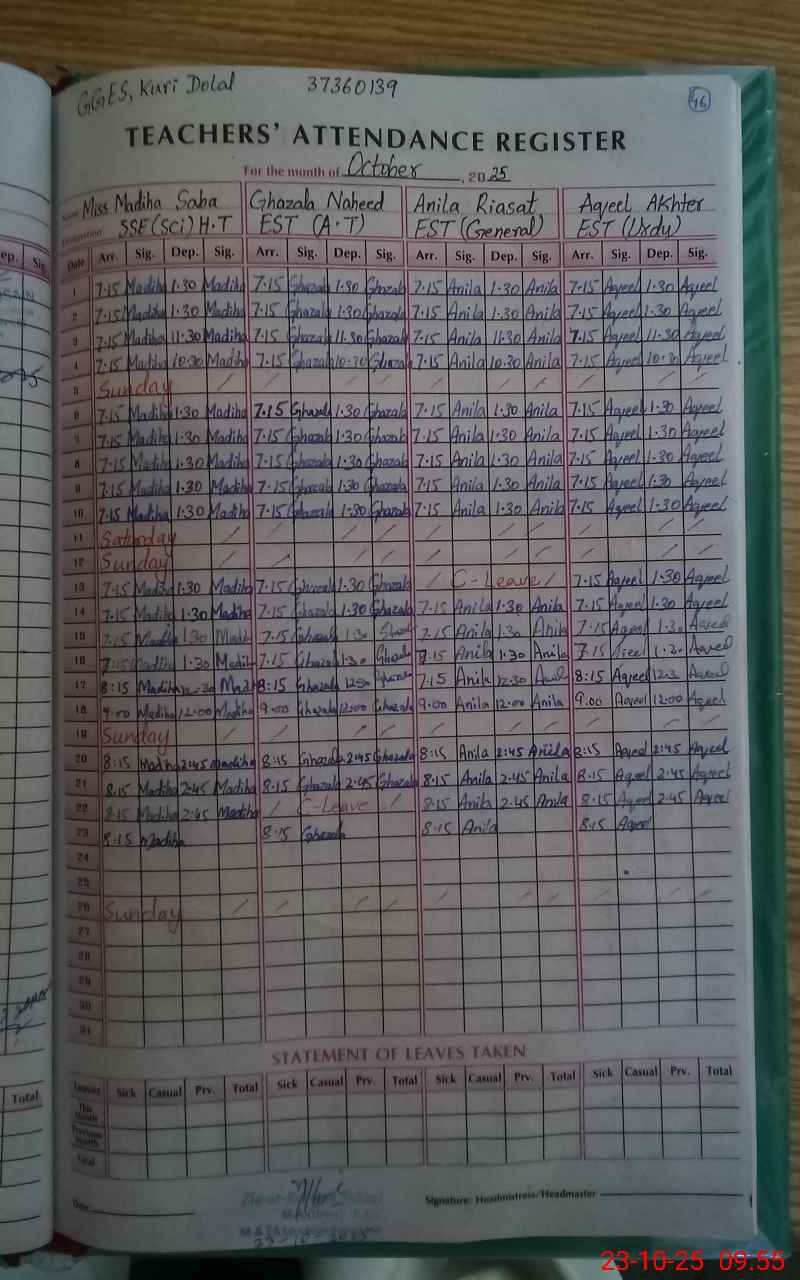 GGES, Kuri Dolal 37360139 16
TEACHERS' ATTENDANCE REGISTER
For the month of October, 2025
Name Miss Madiha Saba Ghazala Naheed Anila Riasat Aqeel Akhter
Designation SSE(Sci) H.T EST (A.T) EST (General) EST (Urdu)
Date Arr. Sig. Dep. Sig. Arr. Sig. Dep. Sig. Arr. Sig. Dep. Sig. Arr. Sig. Dep. Sig.
1 7.15 Madiha 1.30 Madiha 7.15 Ghazala 1.30 Ghazala 7.15 Anila 1.30 Anila 7.15 Aqeel 1.30 Aqeel
2 7.15 Madiha 1.30 Madiha 7.15 Ghazala 1.30 Ghazala 7.15 Anila 1.30 Anila 7.15 Aqeel 1.30 Aqeel
3 7.15 Madiha 11.30 Madiha 7.15 Ghazala 11.30 Ghazala 7.15 Anila 11.30 Anila 7.15 Aqeel 11.30 Aqeel
4 7.15 Madiha 10.30 Madiha 7.15 Ghazala 10.30 Ghazala 7.15 Anila 10.30 Anila 7.15 Aqeel 10.30 Aqeel
5 Sunday
6 7.15 Madiha 1.30 Madiha 7.15 Ghazala 1.30 Ghazala 7.15 Anila 1.30 Anila 7.15 Aqeel 1.30 Aqeel
7 7.15 Madiha 1.30 Madiha 7.15 Ghazala 1.30 Ghazala 7.15 Anila 1.30 Anila 7.15 Aqeel 1.30 Aqeel
8 7.15 Madiha 1.30 Madiha 7.15 Ghazala 1.30 Ghazala 7.15 Anila 1.30 Anila 7.15 Aqeel 1.30 Aqeel
9 7.15 Madiha 1.30 Madiha 7.15 Ghazala 1.30 Ghazala 7.15 Anila 1.30 Anila 7.15 Aqeel 1.30 Aqeel
10 7.15 Madiha 1.30 Madiha 7.15 Ghazala 1.30 Ghazala 7.15 Anila 1.30 Anila 7.15 Aqeel 1.30 Aqeel
11 Saturday
12 Sunday
13 7.15 Madiha 1.30 Madiha 7.15 Ghazala 1.30 Ghazala / C-Leave / 7.15 Aqeel 1.30 Aqeel
14 7.15 Madiha 1.30 Madiha 7.15 Ghazala 1.30 Ghazala 7.15 Anila 1.30 Anila 7.15 Aqeel 1.30 Aqeel
15 7.15 Madiha 1.30 Madiha 7.15 Ghazala 1.30 7.15 Anila 1.30 Anila 7.15 Aqeel 1.30 Aqeel
16 7.15 Madiha 1.30 Madiha 7.15 Ghazala 1.30 7.15 Anila 1.30 Anila 7.15 Aqeel Aqeel
17 8:15 Madiha 12.30 Madiha 8:15 Ghazala 12.30 7.15 Anila 12.30 Anila 8:15 Aqeel Aqeel
18 9.00 Madiha 12.00 Madiha 9.00 Ghazala 12.00 Ghazala 9.00 Anila 12.00 Anila 9.00 Aqeel 12.00 Aqeel
19 Sunday
20 8:15 Madiha 2:45 Madiha 8:15 Ghazala 2:45 Ghazala 8:15 Anila 2:45 Anila 8:15 Aqeel 2:45 Aqeel
21 8.15 Madiha 2.45 Madiha 8.15 Ghazala 2.45 Ghazala 8.15 Anila 2.45 Anila 8.15 Aqeel 2.45 Aqeel
22 8.15 Madiha 2:45 Madiha / C-Leave / 8.15 Anila 2.45 Anila 8.15 Aqeel 2.45 Aqeel
23 8.15 Madiha 8.15 Ghazala 8.15 Anila 8.15 Aqeel
24
25
26 Sunday
27
28
29
30
31
STATEMENT OF LEAVES TAKEN
Leaves Sick Casual Prv. Total Sick Casual Prv. Total Sick Casual Prv. Total Sick Casual Prv. Total
This Month
Previous Month
Total
Date Signature: Headmistress/Headmaster
ep. Sig.
Total
23-10-25 09.55